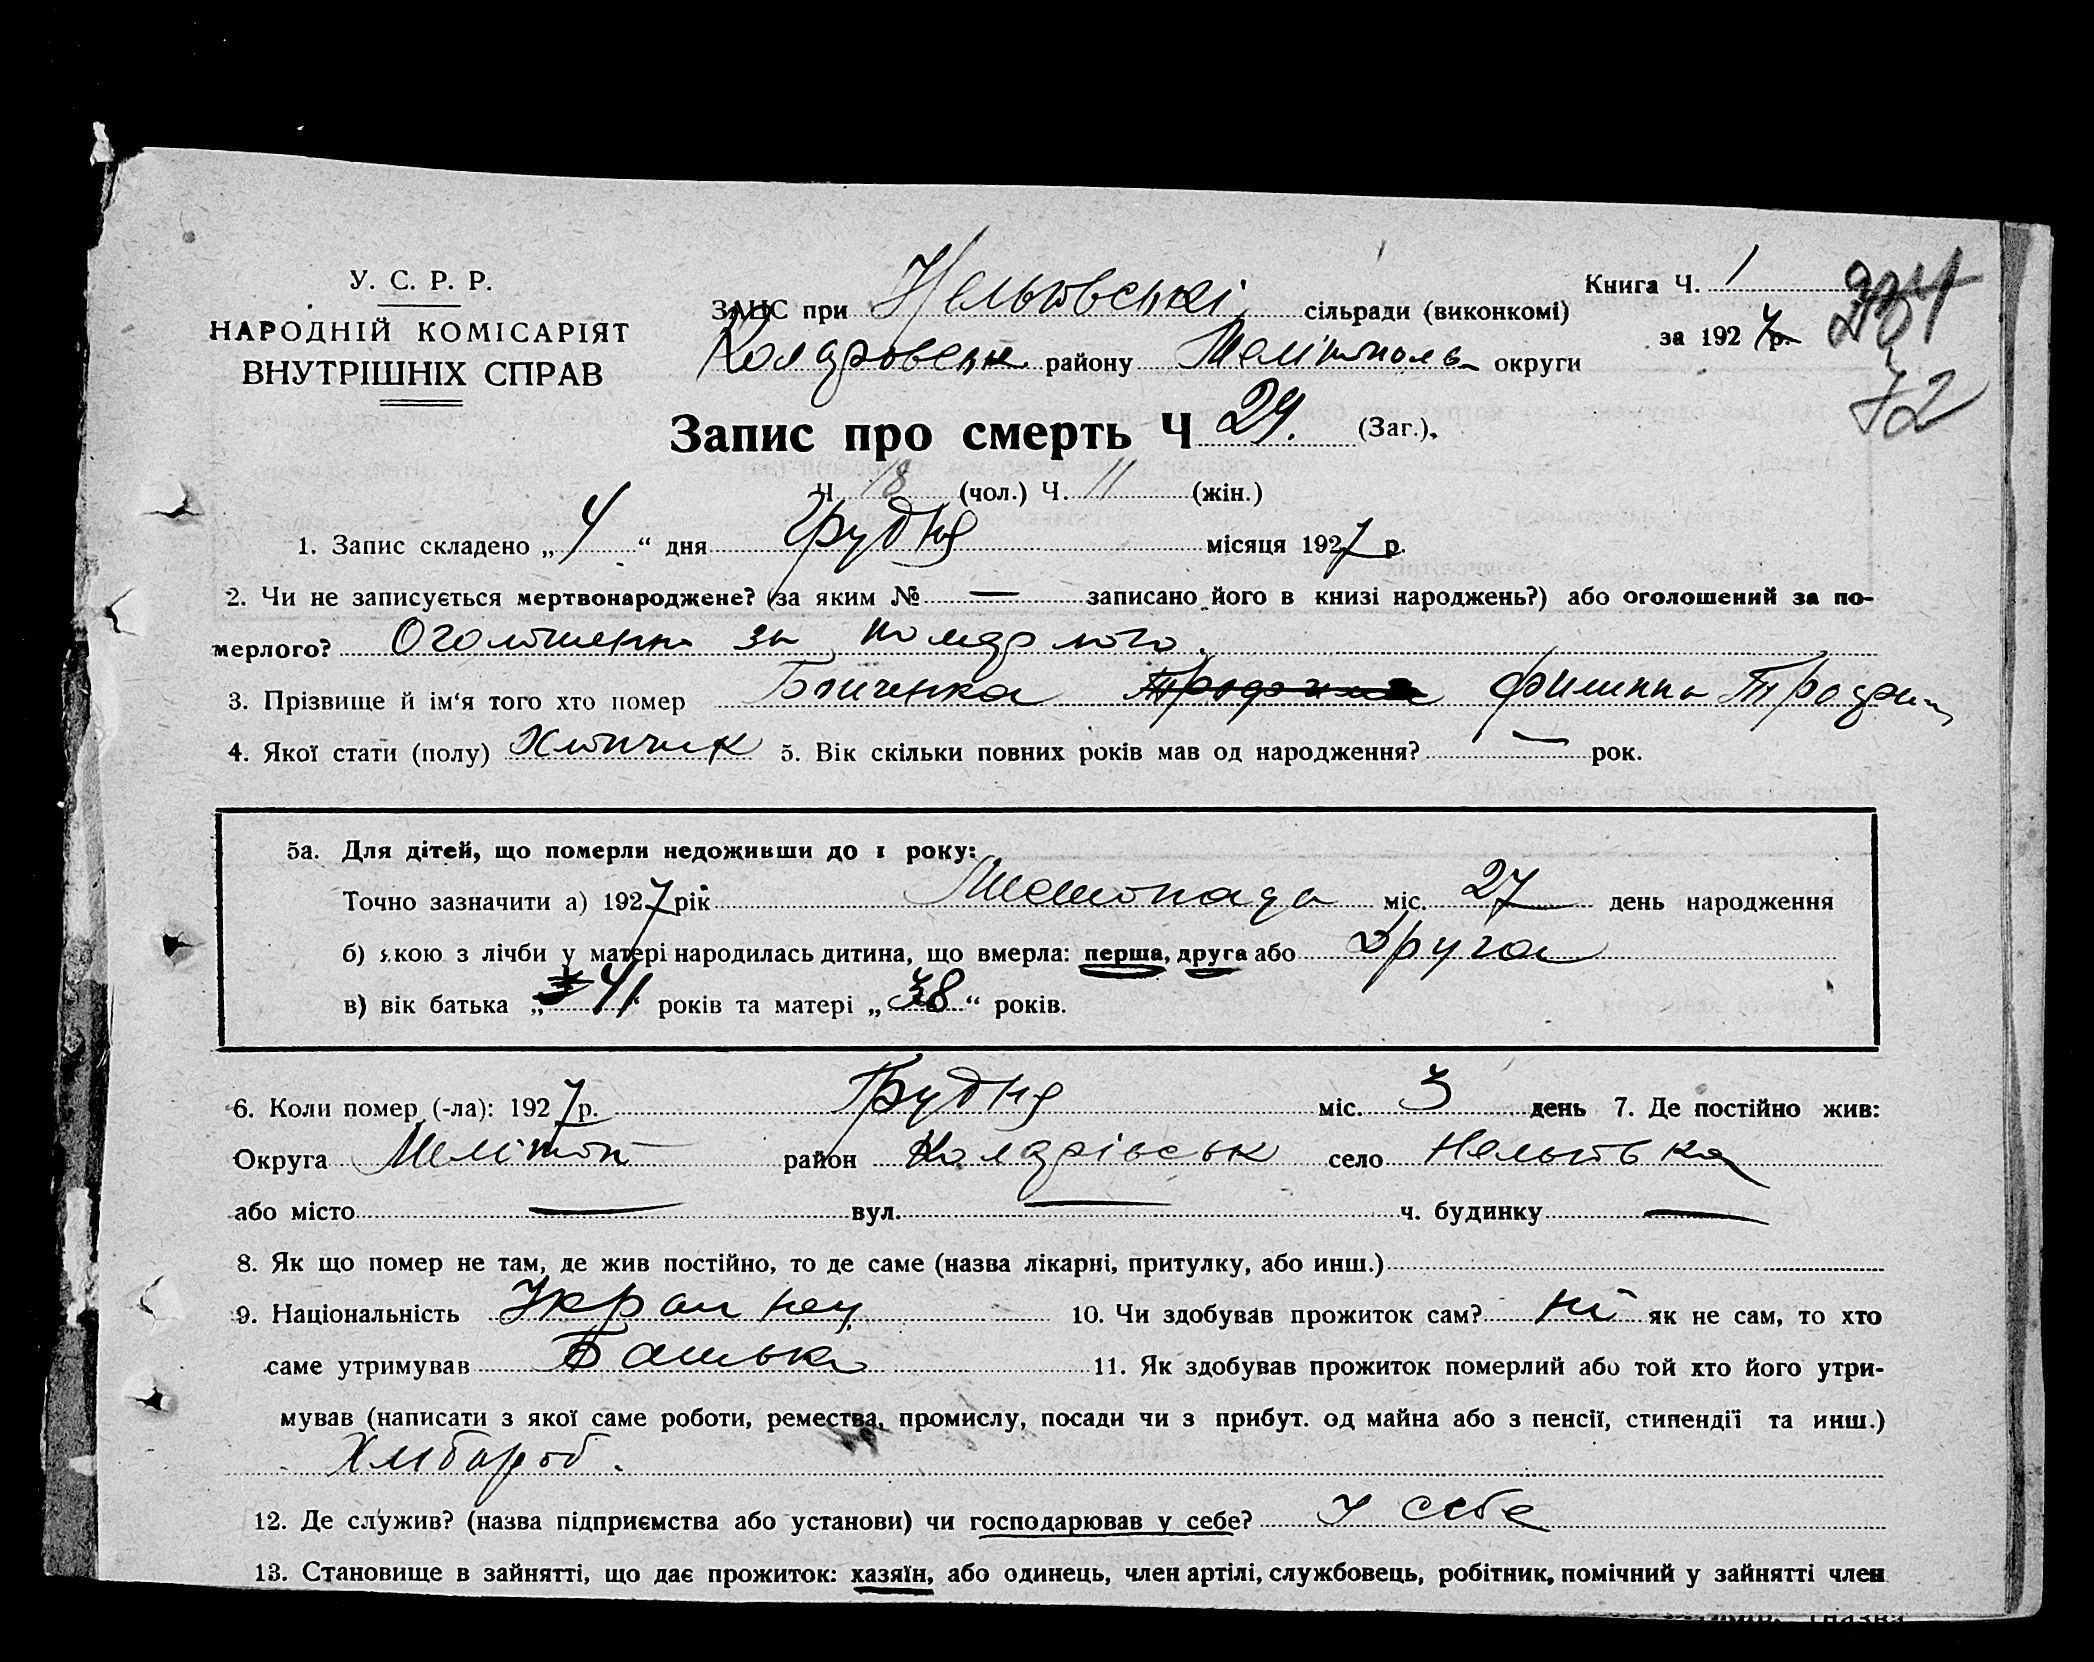 У. С. Р. Р.
НАРОДНІЙ КОМІСАРІЯТ
ВНУТРІШНІХ СПРАВ
ЗАГС при Нельговські сільради (виконкомі)
району Мелітополь округи
Книга Ч. 1
за 1927 р.
72
Запис про смерть Ч 29. (Заг.),
Ч. 18 (чол.) Ч. 11 (жін.)
1. Запис складено „ 4 “ дня Грудня місяця 1927 р.
2. Чи не записується мертвонароджене? (за яким № — записано його в книзі народжень?) або оголошений за по-
мерлого? за померлого.
3. Прізвище й ім‘я того хто помер
4. Якої стати (полу) Хлопчик 5. Вік скільки повних років мав од народження? — рок.
5а. Для дітей, що померли недоживши до 1 року:
Точно зазначити а) 1927 рік Листопада міс. 27 день народження
б) якою з лічби у матері народилась дитина, що вмерла: перша, друга або Друга
в) вік батька „ 41 “ років та матері „ 38 “ років.
6. Коли помер (-ла): 1927 р. Грудня міс. 3 день 7. Де постійно жив:
Округа Мелітоп район Колярівськ село
або місто — вул. — ч. будинку —
8. Як що помер не там, де жив постійно, то де саме (назва лікарні, притулку, або инш.)
9. Національність 10. Чи здобував прожиток сам? ні як не сам, то хто
саме утримував Батько 11. Як здобував прожиток померлий або той хто його утри-
мував (написати з якої саме роботи, ремества, промислу, посади чи з прибут. од майна або з пенсії, стипендії та инш.)
Хлібороб.
12. Де служив? (назва підприємства або установи) чи господарював у себе? у себе
13. Становище в зайнятті, що дає прожиток: хазяїн, або одинець, член артілі, службовець, робітник, помічний у зайнятті член